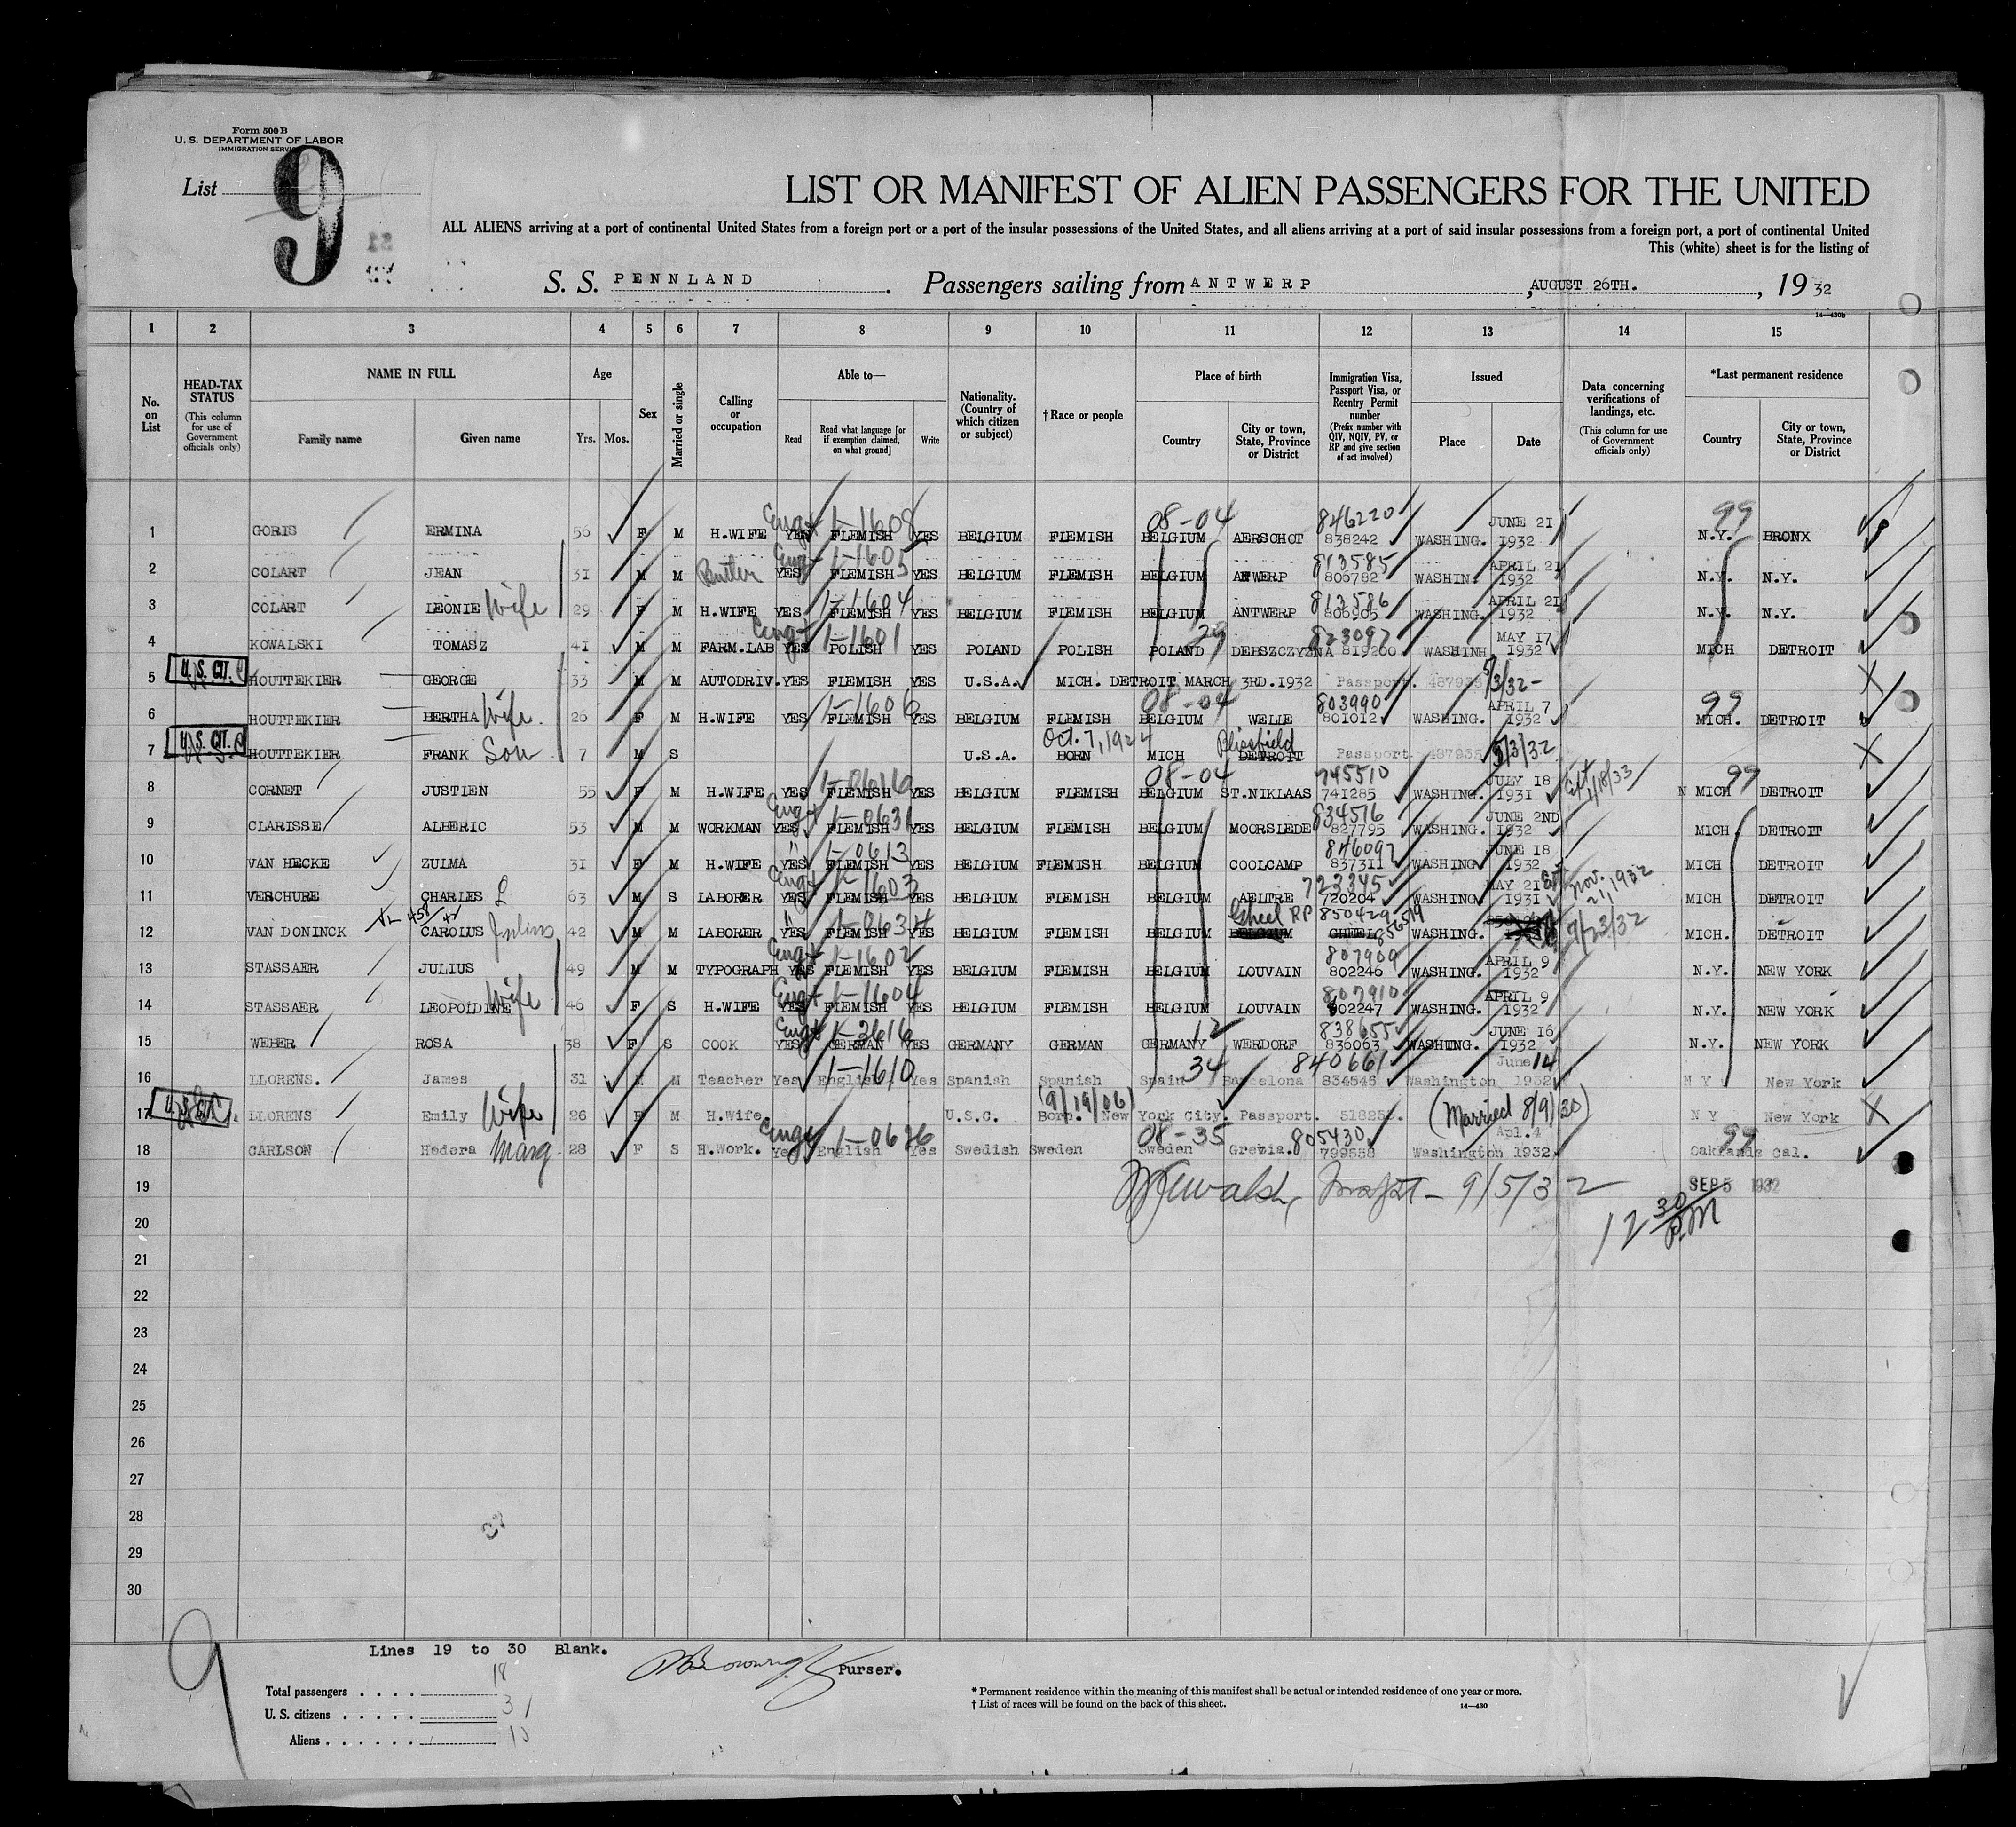 Form 500 B
U. S. DEPARTMENT OF LABOR
IMMIGRATION SERVICE
List 9
LIST OR MANIFEST OF ALIEN PASSENGERS FOR THE UNITED
ALL ALIENS arriving at a port of continental United States from a foreign port or a port of the insular possessions of the United States, and all aliens arriving at a port of said insular possessions from a foreign port, a port of continental United
This (white) sheet is for the listing of
S. S. PENNLAND. Passengers sailing from ANTWERP, AUGUST 26TH., 1932
14—430b
1 2 3 4 5 6 7 8 9 10 11 12 13 14 15
No. on List
HEAD-TAX STATUS (This column for use of Government officials only)
NAME IN FULL Family name Given name
Age Yrs. Mos.
Sex
Married or single
Calling or occupation
Able to— Read Read what language [or if exemption claimed, on what ground] Write
Nationality. (Country of which citizen or subject)
†Race or people
Place of birth Country City or town, State, Province or District
Immigration Visa, Passport Visa, or Reentry Permit number (Prefix number with QIV, NQIV, PV, or RP and give section of act involved)
Issued Place Date
Data concerning verifications of landings, etc. (This column for use of Government officials only)
*Last permanent residence Country City or town, State, Province or District
1 GORIS ERMINA 56 F M H.WIFE Engl YES 1-1608 FLEMISH YES BELGIUM FLEMISH 08-04 BELGIUM AERSCHOT 846220 838242 WASHING. JUNE 21 1932 99 N.Y. BRONX
2 COLART JEAN 31 M M Butler Eng YES 1-1605 FLEMISH YES BELGIUM FLEMISH BELGIUM ANTWERP 813585 806782 WASHIN. APRIL 21 1932 N.Y. N.Y.
3 COLART LEONIE Wife 29 F M H.WIFE YES 1-1604 FLEMISH YES BELGIUM FLEMISH BELGIUM ANTWERP 813586 806905 WASHING. APRIL 21 1932 N.Y. N.Y.
4 KOWALSKI TOMASZ 41 M M FARM.LAB Engl YES 1-1601 POLISH YES POLAND POLISH POLAND 29 DEBSZCZYZNA 823097 819200 WASHINH. MAY 17 1932 MICH DETROIT
U.S. CIT.
5 HOUTTEKIER GEORGE 33 M M AUTODRIV. YES FLEMISH YES U.S.A. MICH. DETROIT MARCH 3RD.1932 Passport. 487935 5/3/32-
6 HOUTTEKIER BERTHA Wife. 26 F M H.WIFE YES 1-1606 FLEMISH YES BELGIUM FLEMISH 08-04 BELGIUM WELLE 803990 801012 WASHING. APRIL 7 1932 99 MICH. DETROIT
U.S. CIT.
7 HOUTTEKIER FRANK Son 7 M S U.S.A. Oct. 7, 1924 BORN MICH Blissfield DETROIT Passport 487935 5/3/32
8 CORNET JUSTIEN 55 F M H.WIFE YES 1-0616 FLEMISH YES BELGIUM FLEMISH 08-04 BELGIUM ST.NIKLAAS 745510 741285 WASHING. JULY 18 1931 Ext 1/18/33 99 N MICH DETROIT
9 CLARISSE ALBERIC 53 M M WORKMAN Engl YES 1-0631 FLEMISH YES BELGIUM FLEMISH BELGIUM MOORSLEDE 834516 827795 WASHING. JUNE 2ND 1932 MICH. DETROIT
10 VAN HECKE ZULMA 31 F M H.WIFE " YES 1-0613 FLEMISH YES BELGIUM FLEMISH BELGIUM COOLCAMP 846097 837311 WASHING JUNE 18 1932 MICH DETROIT
11 VERCHURE CHARLES L 63 M S LABORER Engl YES 1-1603 FLEMISH YES BELGIUM FLEMISH BELGIUM AELTRE 723345 720204 WASHING MAY 21 1931 Ext Nov. 21, 1932 MICH DETROIT
12 VAN DONINCK CAROLUS Julius 42 M M LABORER " YES 1-0634 FLEMISH YES BELGIUM FLEMISH BELGIUM Gheel BELGIUM GHEEL RP 850429 856519 WASHING. 7/23/32 MICH. DETROIT
13 STASSAER JULIUS 49 M M TYPOGRAPH Engl YES 1-1602 FLEMISH YES BELGIUM FLEMISH BELGIUM LOUVAIN 807909 802246 WASHING. APRIL 9 1932 N.Y. NEW YORK
14 STASSAER LEOPOLDINE Wife 46 F S H.WIFE Engl YES 1-1604 FLEMISH YES BELGIUM FLEMISH BELGIUM LOUVAIN 807910 802247 WASHING. APRIL 9 1932 N.Y. NEW YORK
15 WEBER ROSA 38 F S COOK Engl YES 1-2616 GERMAN YES GERMANY GERMAN GERMANY 12 WERDORF 838655 836063 WASHING. JUNE 16 1932 N.Y. NEW YORK
16 LLORENS. James 31 M M Teacher Yes 1-1610 English Yes Spanish Spanish Spain 34 Barcelona 840661 834546 Washington June 14 1932 N Y New York
U.S.C.
17 LLORENS Emily Wife 26 F M H.Wife. U.S.C. (9/19/06) Born. New York City. Passport. 518255. (Married 8/9/30) N Y New York
18 CARLSON Hedera Marg 28 F S H.Work. Engl Yes 1-0626 English Yes Swedish Sweden 08-35 Sweden Grevia. 805430 799558 Washington Apl.4 1932 99 Oaklands Cal.
19 9/5/32 SEP 5 1932
20 12 30 P.M
21
22
23
24
25
26
27
28
29
30
9
Lines 19 to 30 Blank.
Purser.
Total passengers . . . . 18
U. S. citizens . . . . . 3
Aliens . . . . . . 15
* Permanent residence within the meaning of this manifest shall be actual or intended residence of one year or more.
† List of races will be found on the back of this sheet.
14—430